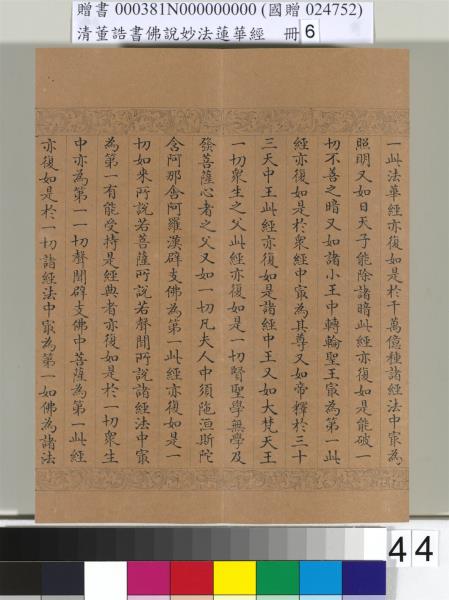 贈書 000381N000000000 (國贈 024752)
清董誥書佛說妙法蓮華經 冊 6
一此法華經亦復如是於千萬億種諸經法中冣為
照明又如日天子能除諸暗此經亦復如是能破一
切不善之暗又如諸小王中轉輪聖王冣為第一此
經亦復如是於衆經中冣為其尊又如帝釋於三十
三天中王此經亦復如是諸經中王又如大梵天王
一切衆生之父此經亦復如是一切賢聖學無學及
發菩薩心者之父又如一切凡夫人中須陁洹斯陀
含阿那含阿羅漢辟支佛為第一此經亦復如是一
切如來所說若菩薩所說若聲聞所說諸經法中冣
為第一有能受持是經典者亦復如是於一切衆生
中亦為第一一切聲聞辟支佛中菩薩為第一此經
亦復如是於一切諸經法中冣為第一如佛為諸法
44